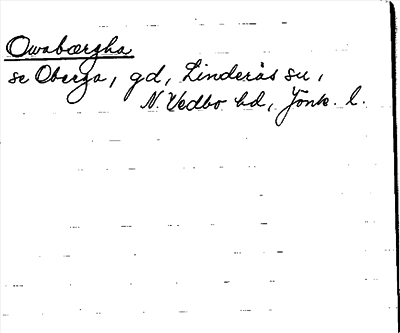 Owabærgha
se Oberga, gd, Linderås sn,
N. Vedbo hd, Jönk. l.